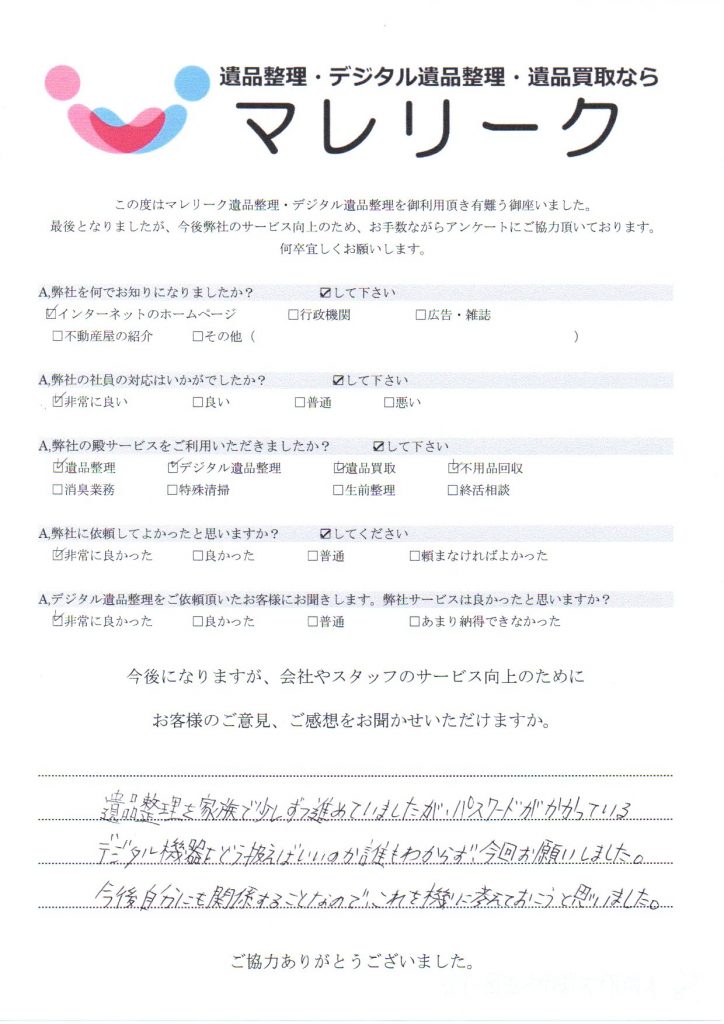 遺品整理・デジタル遺品整理・遺品買取なら
マレリーク
この度はマレリーク遺品整理・デジタル遺品整理を御利用頂き有難う御座いました。
最後となりましたが、今後弊社のサービス向上のため、お手数ながらアンケートにご協力頂いております。
何卒宜しくお願いします。
A,弊社を何でお知りになりましたか？ ☑して下さい
☑インターネットのホームページ □行政機関 □広告・雑誌
□不動産屋の紹介 □その他（ ）
A,弊社の社員の対応はいかがでしたか？ ☑して下さい
☑非常に良い □良い □普通 □悪い
A,弊社の殿サービスをご利用いただきましたか？ ☑して下さい
☑遺品整理 ☑デジタル遺品整理 ☑遺品買取 ☑不用品回収
□消臭業務 □特殊清掃 □生前整理 □終活相談
A,弊社に依頼してよかったと思いますか？ ☑してください
☑非常に良かった □良かった □普通 □頼まなければよかった
A,デジタル遺品整理をご依頼頂いたお客様にお聞きします。弊社サービスは良かったと思いますか？
☑非常に良かった □良かった □普通 □あまり納得できなかった
今後になりますが、会社やスタッフのサービス向上のために
お客様のご意見、ご感想をお聞かせいただけますか。
遺品整理を家族で少しずつ進めていましたが、パスワードがかかっている
デジタル機器をどう扱えばいいのか誰もわからず、今回お願いしました。
今後自分にも関係することなので、これを機に考えておこうと思いました。
ご協力ありがとうございました。